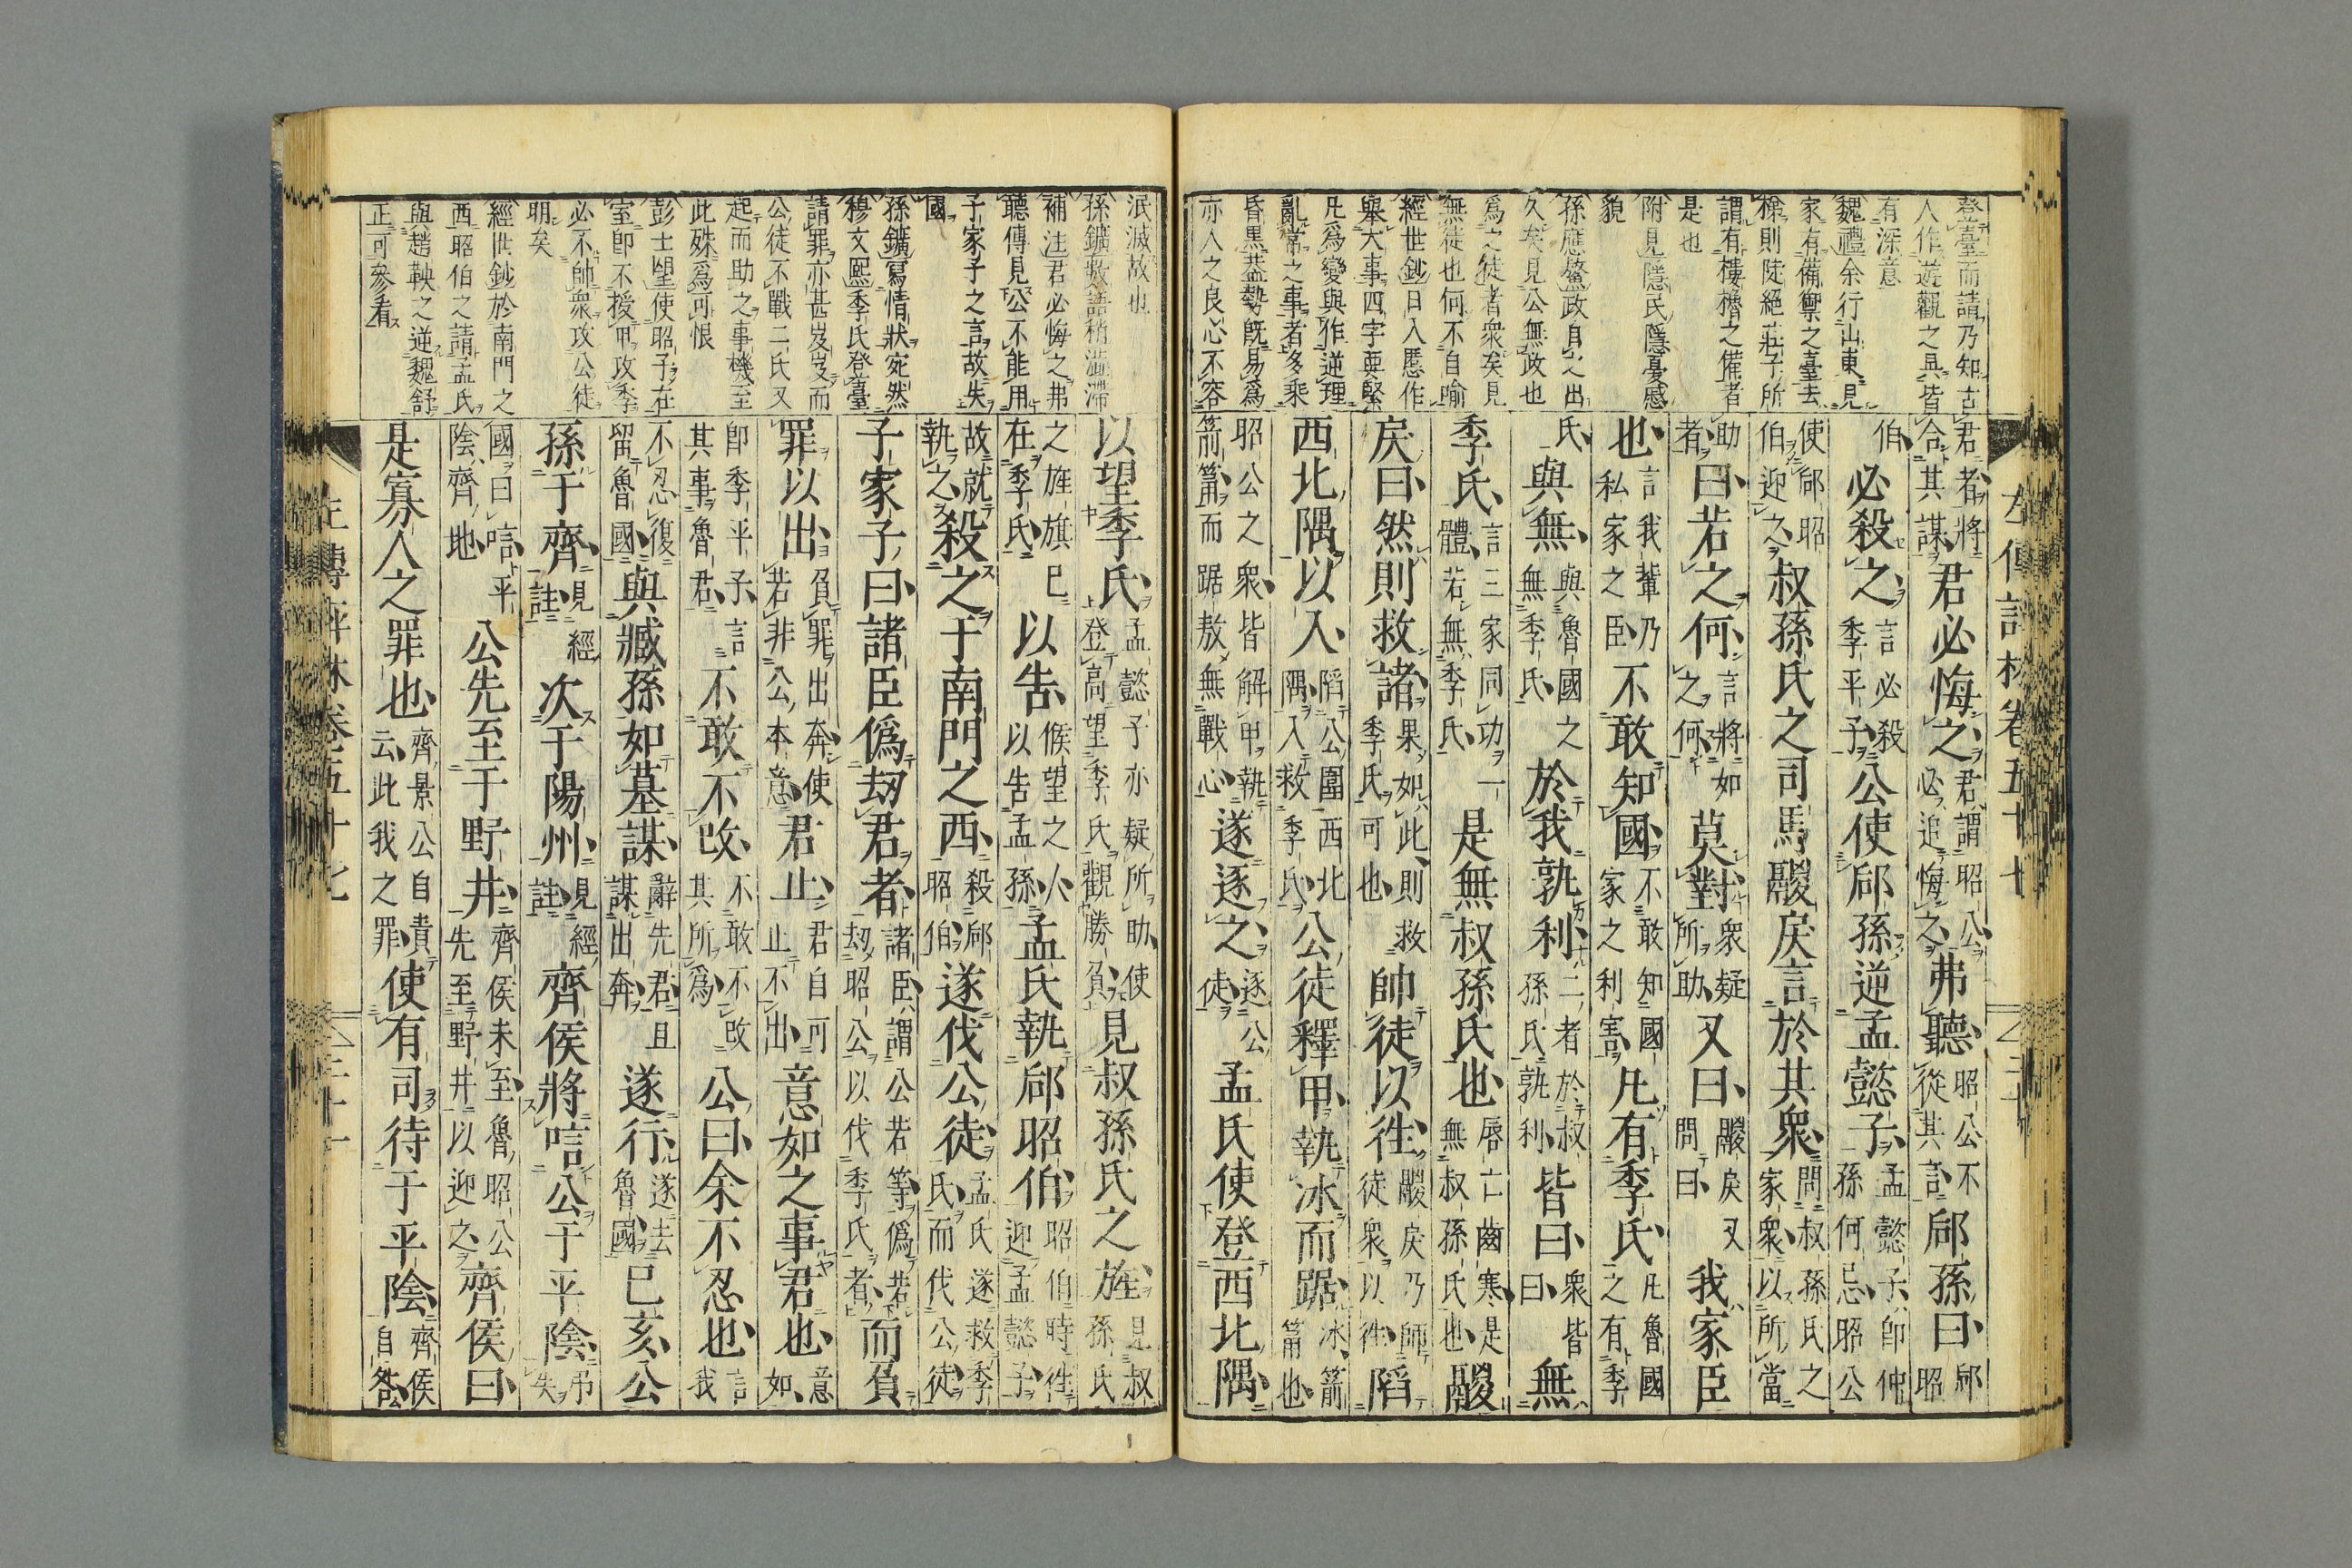 登臺而請乃知古
人作遊觀之具皆
有深意
魏禮余行山東見
家有備禦之臺去
梯則陡絕莊子所
謂有樓櫓之備者
是也
附見隱民隱憂感
貌
孫應鰲政自之出
久矣見公無政也
爲之徒者衆矣見
無徒也何不自喻
經世鈔日入慝作
舉大事四字要緊
凡爲變與作逆理
亂常之事者多乘
昏黑葢勢旣易爲
亦人之良心不容
君者將合其謀君必悔之君謂昭公必追悔之弗聽昭公不從其言郈孫曰郈昭
伯必殺之言必殺季平子公使郈孫逆孟懿子孟懿子卽仲孫何忌昭公
使郈昭伯迎之叔孫氏之司馬鬷戾言於其衆問叔孫氏之家衆以所當
助者曰若之何言將如之何莫對衆疑所助又曰鬷戾又問曰我家臣
也言我輩乃私家之臣不敢知國不敢知國家之利害凡有季氏凡魯國之有季
氏與無與魯國之無季氏於我孰利二者於叔孫氏孰利皆曰衆皆曰無
季氏言三家同功一體若無季氏是無叔孫氏也唇亡齒寒是無叔孫氏也鬷
戾曰然則救諸果如此則救季氏可也帥徒以徃鬷戾乃師徒衆以徃陷
西北隅以入陷公圍西北隅入救季氏公徒釋甲執冰而踞冰箭筩也
昭公之衆皆解甲執箭筩而踞敖無戰心遂逐之逐公徒孟氏使登西北隅
左傳評林卷五十七
泯滅故也
孫鑛敘語稍澁滯
補注君必悔之弗
聽傳見公不能用
子家子之言故失
國
孫鑛寫情狀宛然
穆文熙季氏登臺
請罪亦甚岌岌而
公徒不戰二氏又
起而助之事機至
此殊爲可恨
彭士望使昭子在
室卽不授甲攻季
必不帥衆攻公徒
明矣
經世鈔於南門之
西昭伯之請孟氏
與趙鞅之逆魏舒
正可參看
以望季氏孟懿子亦疑所助使登高望季氏觀勝負見叔孫氏之旌見叔孫氏
之旌旗已在季氏以告候望之人以告孟孫孟氏執郈昭伯昭伯時徃迎孟懿子
故就執之殺之于南門之西殺郈昭伯遂伐公徒孟氏遂救季氏而伐公徒
子家子曰諸臣僞劫君者諸臣謂公若等僞若劫昭公以伐季氏者而負
罪以出負罪出奔使若非公本意君止君自可止不出意如之事君也意如
卽季平子言其事魯君不敢不改不敢不改其所爲公曰余不忍也言我
不忍復留魯國與臧孫如墓謀辭先君且謀出奔遂行遂去魯國己亥公
孫于齊見經註次于陽州見經註齊侯將唁公于平陰弔失
國曰唁平陰齊地公先至于野井齊侯未至魯昭公先至野井以迎之齊侯曰
是寡人之罪也齊景公自責云此我之罪使有司待于平陰齊侯自咎
左傳評林卷五十七